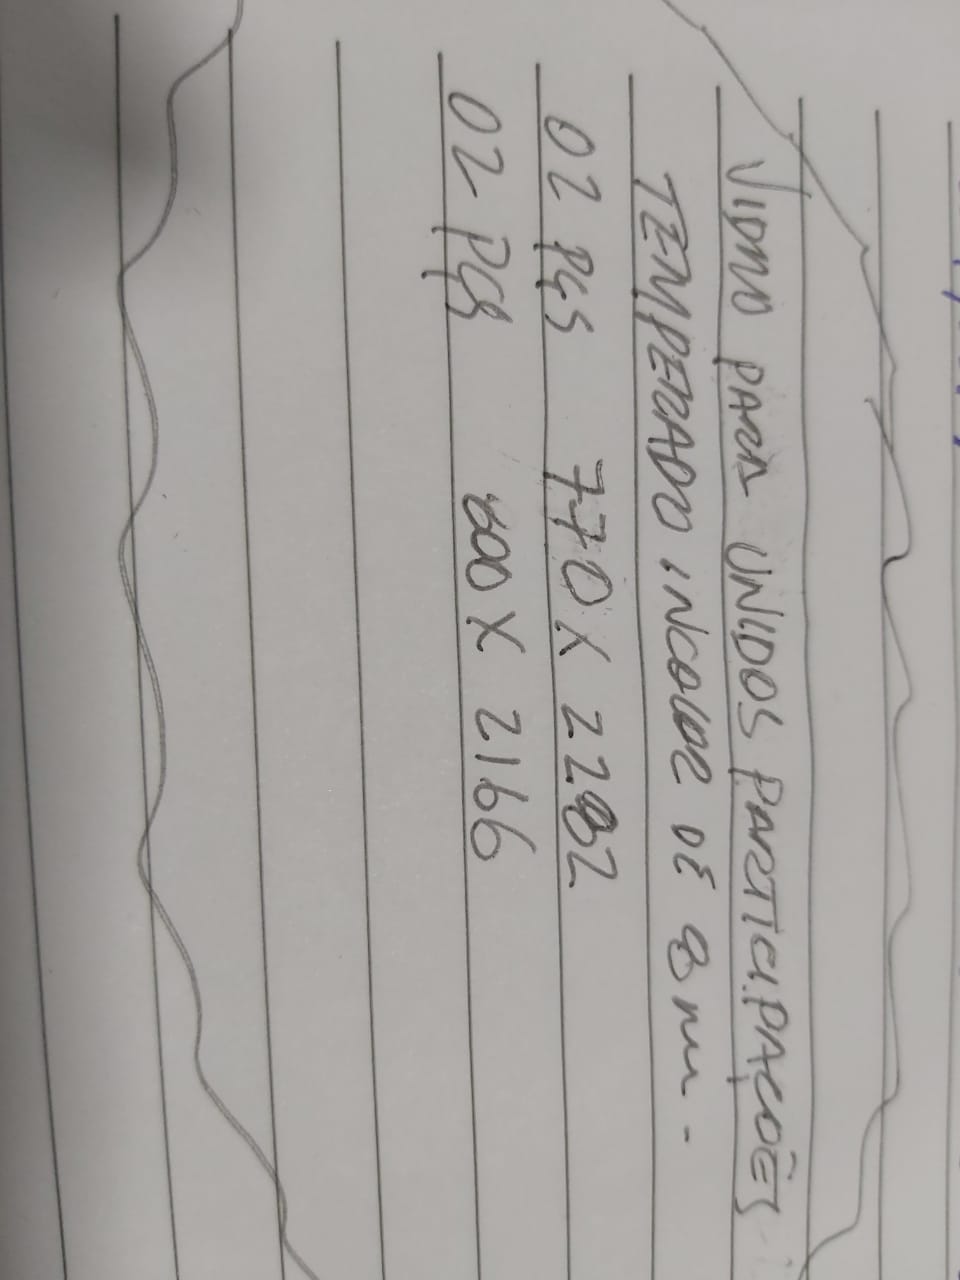 VIDRO PARA UNIDOS PARTICIPAÇÕES
TEMPERADO INCOLOR DE 8 mm.
02 PÇS 770 X 2282
02 PÇS 800 X 2166